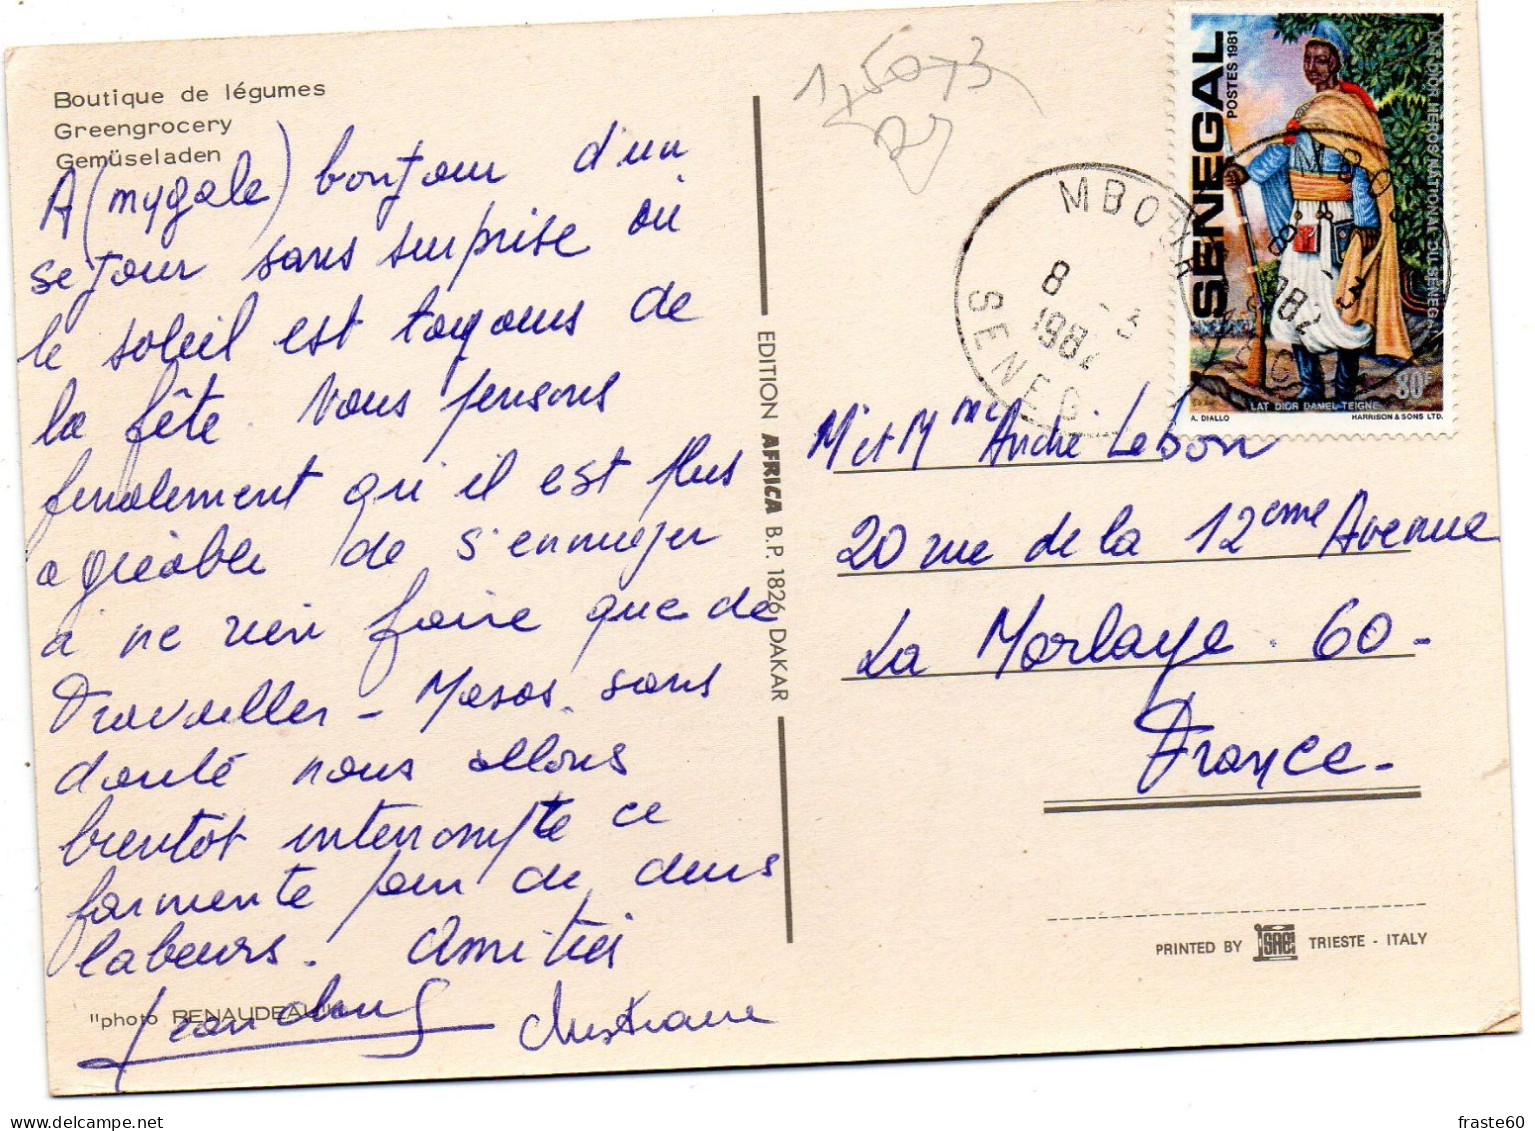 Boutique de légumes
Greengrocery
Gemüseladen
A (mygale) bonjour d'un
séjour sans surprise où
le soleil est toujours de
la fête. Nous pensons
finalement qu'il est plus
agréable de s'ennuyer
à ne rien faire que de
Travailler - Mosos sans
doute nous allons
bientôt interrompre ce
farniente pour de durs
labeurs. Amitiés
Christiane
"photo RENAUDEAU"
EDITION AFRICA B.P. 1826, DAKAR
1,50 x 3
MBOUR
8 - 3
1982
SENEGAL
SENEGAL
POSTES 1981
LAT DIOR HEROS NATIONAL DU SENEGAL
80F
LAT DIOR DAMEL-TEIGNE
A. DIALLO
HARRISON & SONS LTD.
MBOUR
8 - 3
1982
Mr et Mme André Lebon
20 rue de la 12eme Avenue
La Morlaye. 60-
France-
PRINTED BY SAE TRIESTE - ITALY
fraste60